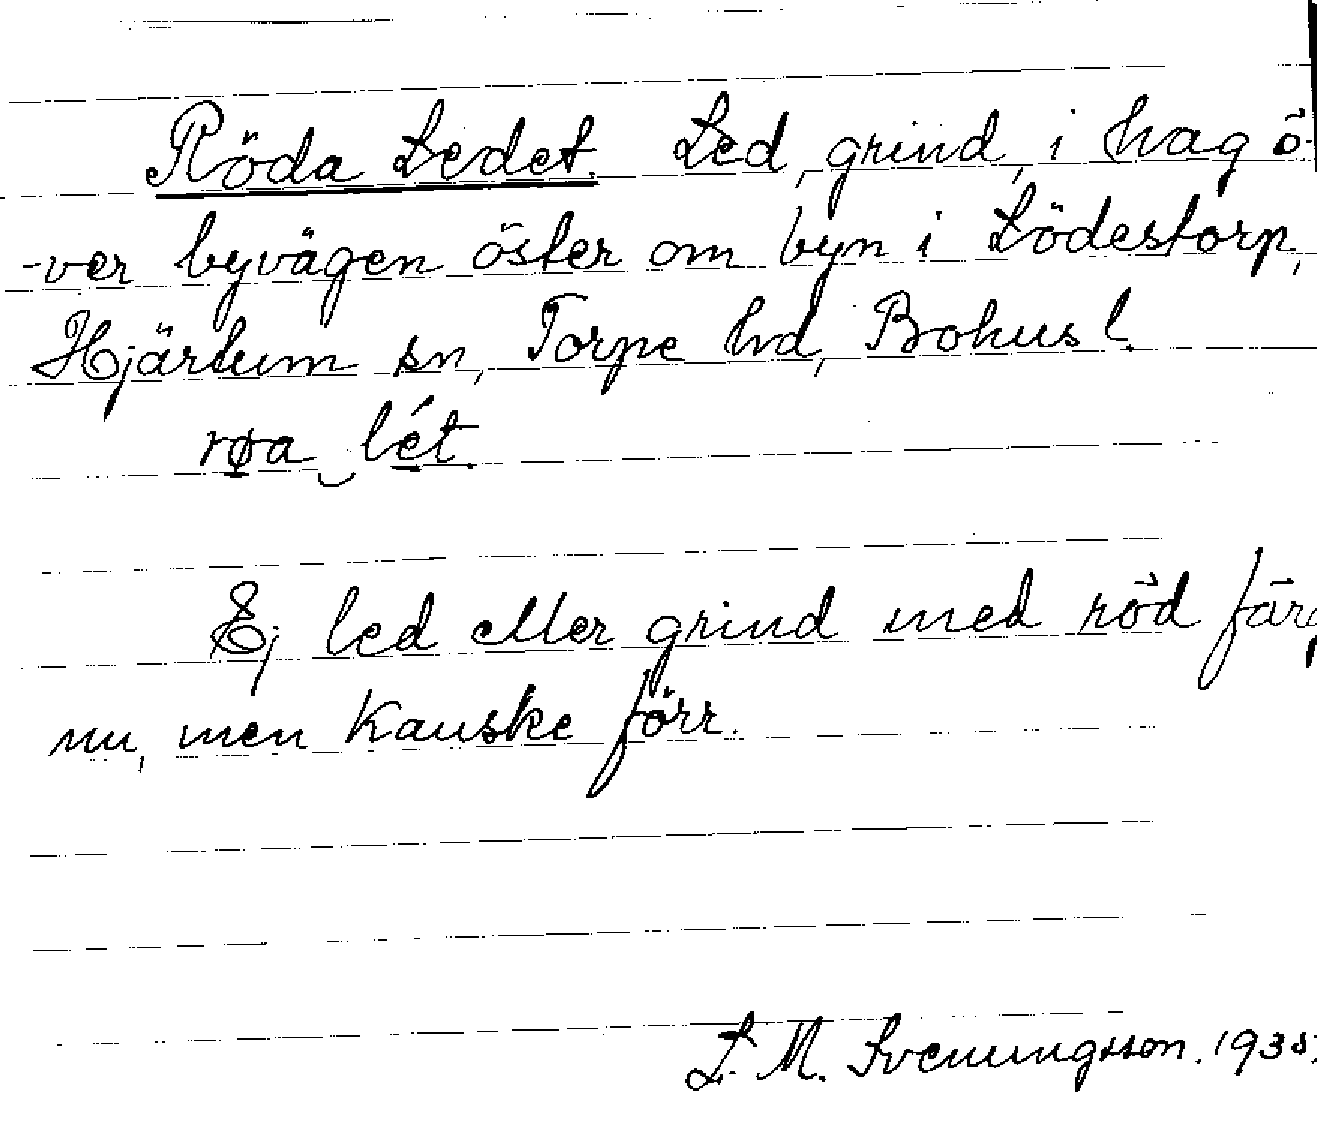 Röda Ledet. Led, grind, i hag ö-
-ver byvägen öster om byn i Lödestorp,
Hjärtum sn, Torpe hd, Bohusl.
røa lét.
Ej led eller grind med röd färg
nu, men kanske förr.
L. M. Svenungsson. 1935.